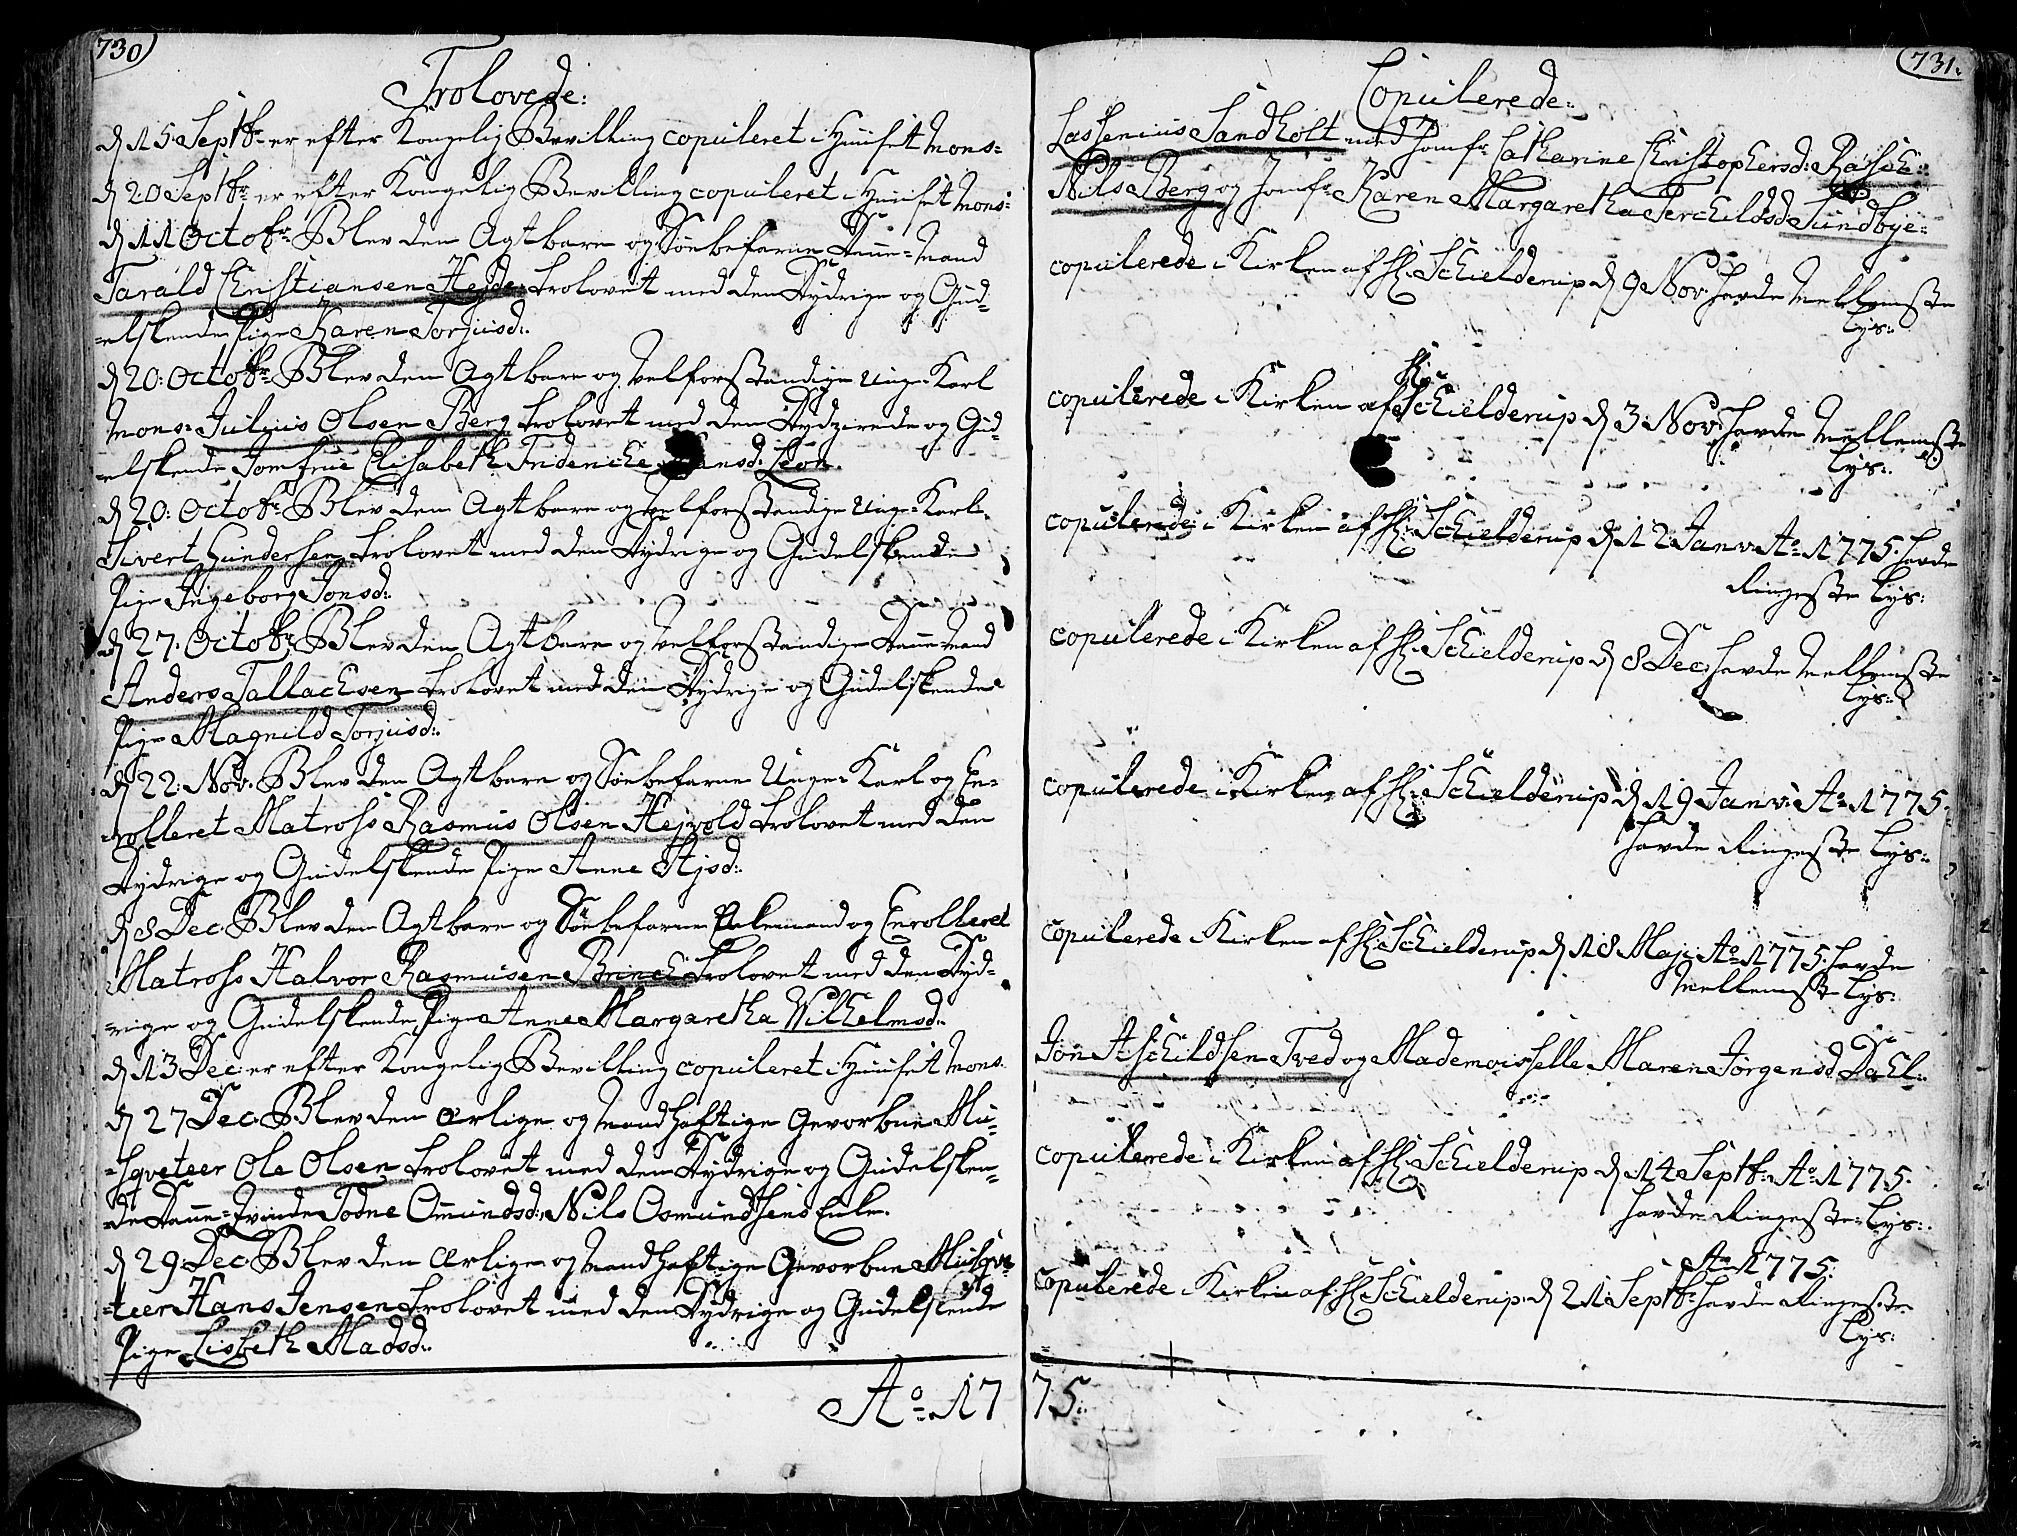 730
Trolovede:
d 15 Septbr er efter Kongelig Bevilling copuleret i Huuset Mons=
d 20 Septbr er efter Kongelig Bevilling copuleret i Huuset Mons:
d 11 Octobr Blev den Agtbare og Søebefarne Danne-Mand
Tarald Christiansen Hejde trolovet med den Dydrige og Gud-
=elskende Pige Karen Torjusd:
d 20: Octobr Blev den Agtbare og Velforstandige Unge Karl
Mons: Julius Olsen Berg trolovet med den Dydzirede og Gud-
=elskende Jomfrue Elisabeth Frideriche Hansd: Leon.
d 20: Octobr Blev den Agtbare og Velforstandige Unge-Karl
Sivert Gundersen trolovet med den Dydrige og Gudelskende
Pige Ingeborg Jonsd:
d 27: Octobr Blev den Agtbare og Velforstandige Danne Mand
Anders Tallachsen trolovet med den Dydrige og Gudelskende
Pige Magnild Torjusd:
d 22: Nov: Blev den Agtbare og Søebefarne Unge-Karl og En-
rolleret Matross Rasmus Olsen Hejvold trolovet med den
Dydrige og Gudelskende Pige Anne Stjsd:
d 8 Dec: Blev den Agtbare og Søebefarne Enkemand og Enrolleret
Matross Halvor Rasmusen Brinch trolovet med den Dyd-
=rige og Gudelskende Pige Anne Margaretha Wilhelmsd:
d 13 Dec er efter Kongelig Bevilling copuleret i Huuset Mons.
d 27 Dec: Blev den ærlige og Mandhaftige Gevorbne Mu-
=sqveteer Ole Olsen trolovet med den Dydrige og Gudelsken-
de Danne-Qvinde Todne Omundsd: Nils Osmundsens Enke.
d 29: Dec: Blev den ærlige og Mandhaftige Gevorbne Musqve-
=teer Hans Jensen trolovet med den Dydrige og Gudelskende
Pige Lisbeth Madsd:
Ao 17
731.
Copulerede:
Lassenius Sandholt med Jomfr Catharine Christophersd: Rasch:
Nils Berg og Jomfr Karen Margaretha Terchildsd Sundbye:
copulerede i Kirken af Hr Schielderup d 9 Nov: havde Mellemste
Lys:
copulerede i Kirken af Hr Schielderup d 3 Nov: havde Mellemste
Lys:
copulerede i Kirken af Hr Schielderup d 12 Janv: Ao 1775. havde
Ringeste Lys:
copulerede i Kirken af Hr Schielderup d 8 Dec: havde Mellemste
Lys:
copulerede i Kirken af Hr Schielderup d 19 Janv: Ao 1775.
havde Ringeste Lys:
copulerede i Kirken af Hr Schielderup d 18 Maji Ao 1775. havde
Mellemste Lys:
Jon Aschildsen Tved og Mademoisselle Maren Jørgensd Dahl:
copulerede i Kirken af Hr Schielderup d 14 Septbr: Ao 1775.
havde Ringeste Lys:
Ao 1775:
copulerede i Kirken af Hr Schielderup d 21 Septbr havde Ringeste
Lys:
75.